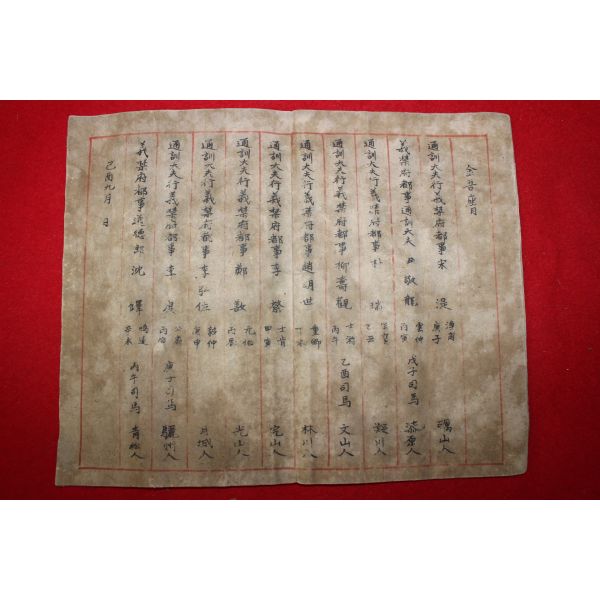 金吾座目
通訓大夫行義禁府都事宋湜 庚子 礪山人
義禁府都事通訓大夫尹敬龍 雲仲 丙寅 戊子司馬 漆原人
通訓大夫行義禁府都事朴 乙丑
通訓大夫行義禁府都事柳壽觀 丙午 乙酉司馬 文山人
通訓大夫行義禁府都事趙明世 重卿 丁未 林川人
通訓大夫行義禁府都事李 士肯 甲寅 完山人
通訓大夫行義禁府都事鄭敾 元伯 丙辰 光山人
通訓大夫行義禁府都事李弘佐 庚申 月城人
通訓大夫行義禁府都事李度 庚子司馬 驪州人
義禁府都事通德郎沈 辛未 丙午司馬 青松人
己酉九月 日